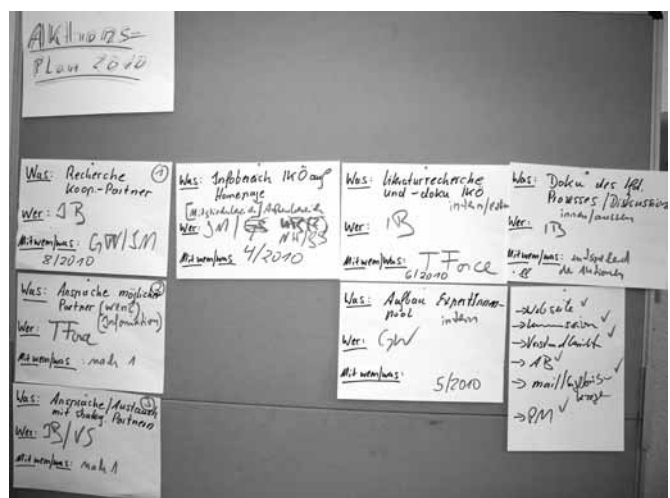 Aktions=
Plan 2010
Was: Recherche ①
Koop.-Partner
Wer: JB
Mit wem/was: GW/JM
8/2010
Was: Ansprache möglicher ②
Partner
(Information)
Wer: TForce
Mit wem/was: nach 1
Was: Ansprache/Austausch ③
mit strateg. Partnern
Wer: JB/VS
Mit wem/was: nach 1
Was: Infobereich IKÖ auf
Homepage
Wer: JM/
Mit wem/was 4/2010
Was: Literaturrecherche
und -doku IKÖ
intern/extern
Wer: JB
Mit wem/was: TForce
6/2010
Was: Aufbau ExpertInnen-
pool
intern
Wer: GW
Mit wem/was:
5/2010
Was: Doku des lfd.
Prozesses/Diskussion
innen/aussen
Wer: JB
Mit wem/was: entsprechend
der Aktionen
→ Webseite ✓
→ Kommission ✓
→ ✓
→ AB ✓
→ mail/
→ PM ✓